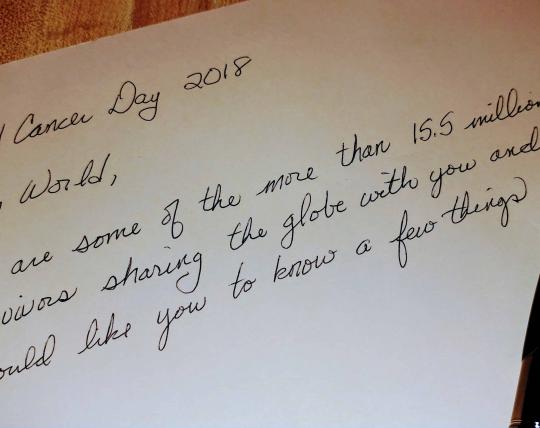 Cancer Day 2018
World,
are some of the more than 15.5 million
vivors sharing the globe with you and
ould like you to know a few things